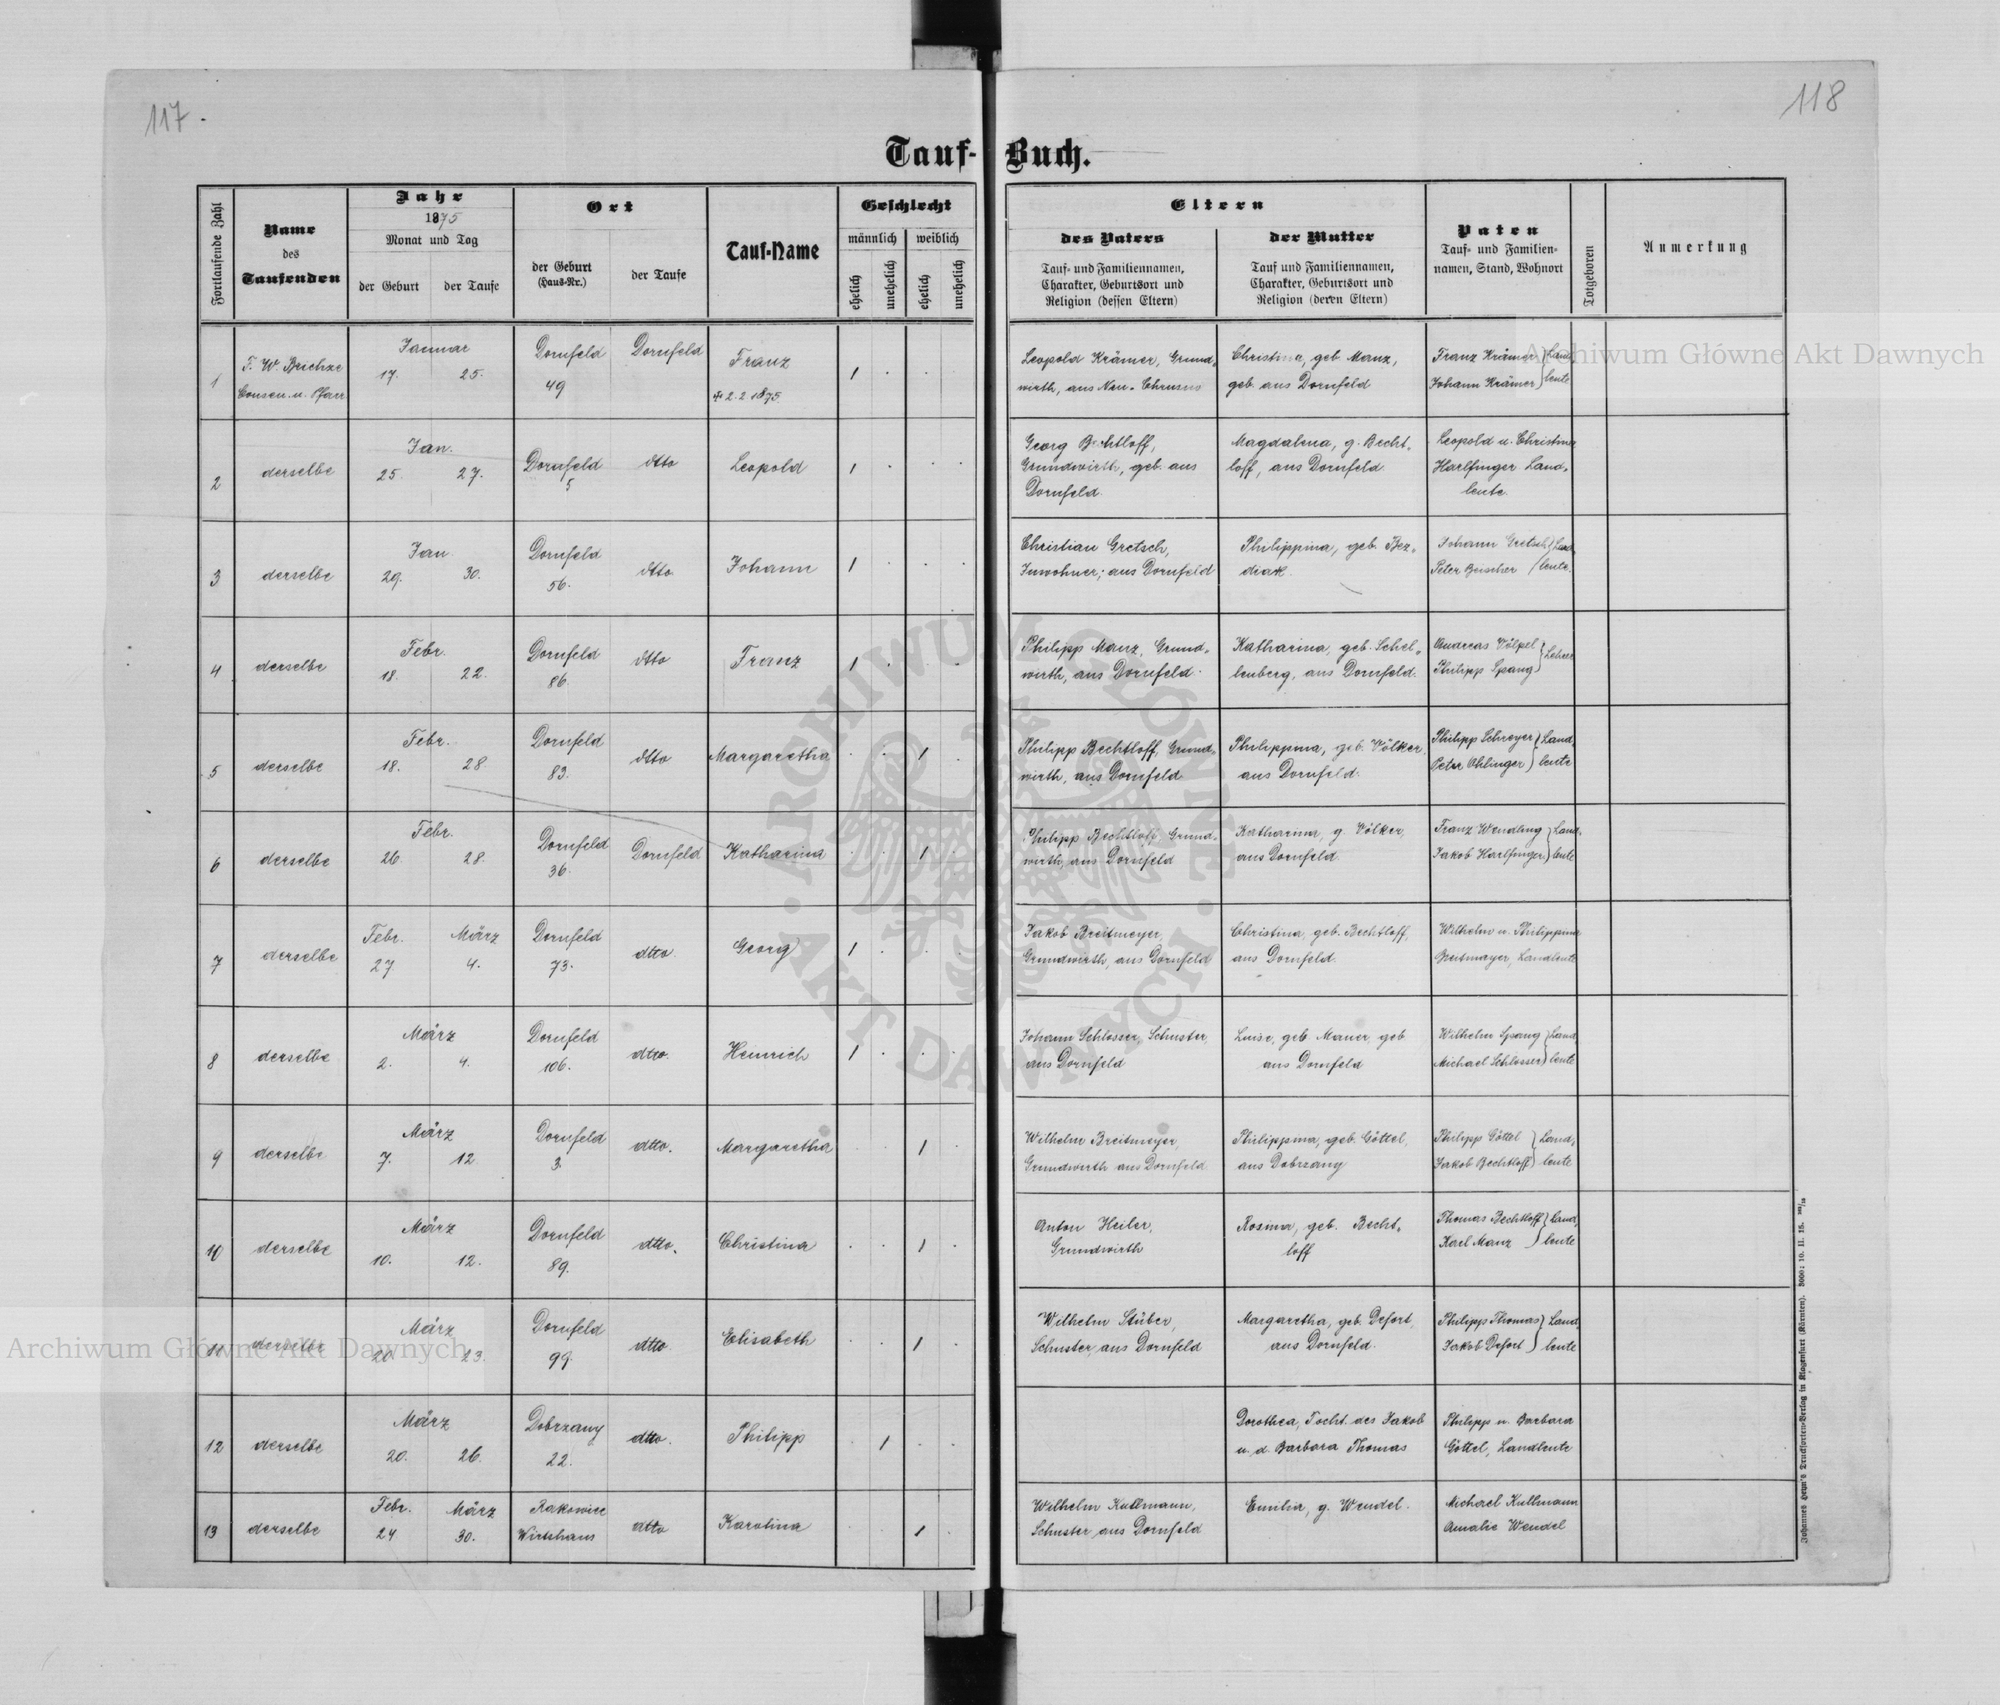 117.
118
Tauf-Buch.
Fortlaufende Zahl
Name
des
Taufenden
Jahr
1875
Monat und Tag
der Geburt
der Taufe
Ort
der Geburt
(Haus-Nr.)
der Taufe
Tauf-Name
Geschlecht
männlich
weiblich
ehelich
unehelich
ehelich
unehelich
Eltern
des Vaters
Tauf- und Familiennamen,
Charakter, Geburtsort und
Religion (dessen Eltern)
der Mutter
Tauf und Familiennamen,
Charakter, Geburtsort und
Religion (deren Eltern)
Paten
Tauf- und Familien-
namen, Stand, Wohnort
Totgeboren
Anmerkung
1
Januar
17. 25.
Dornfeld
49
Dornfeld
Franz
+ 2.2 1875.
1
Leopold Krämer, Grund-
wirth, aus Neu-
Christina, geb. Manz,
geb. aus Dornfeld
Franz Krämer } Land
Johann Krämer } leute
2
derselbe
Jan.
25. 27.
Dornfeld
5
dtto
Leopold
1
Georg Bechtloff,
Grundwirth, geb. aus
Dornfeld.
Magdalena, g. Becht-
loff, aus Dornfeld
Leopold u. Christina
Harlfinger Land-
leute.
3
derselbe
Jan
29. 30.
Dornfeld
56.
dtto
Johann
1
Christian Gretsch,
Inwohner; aus Dornfeld
Philippina, geb. Bez-
diak.
Johann Gretsch } Land
Peter } leute.
4
derselbe
Febr.
18. 22.
Dornfeld
86.
dtto
Franz
1
Philipp Manz, Grund-
wirth, aus Dornfeld.
Katharina, geb. Schel-
lenberg, aus Dornfeld.
Andreas Völpel } Lehrer
Philipp Spang }
5
derselbe
Febr.
18. 28
Dornfeld
83.
dtto
Margaretha
1
Philipp Bechtloff, Grund-
wirth, aus Dornfeld
Philippina, geb. Völker,
aus Dornfeld.
Philipp Schreyer } Land-
Peter Ohlinger } leute
6
derselbe
Febr.
26 28.
Dornfeld
36.
Dornfeld
Katharina
1
Philipp Bechtloff, Grund-
wirth, aus Dornfeld
Katharina, g. Völker,
aus Dornfeld.
Franz Wendling } Land-
Jakob Harlfinger } leute
7
derselbe
Febr. März
27 4.
Dornfeld
73.
dtto.
Georg
1
Jakob Breitmeyer,
Grundwirth, aus Dornfeld
Christina, geb. Bechtloff,
aus Dornfeld.
Wilhelm u. Philippina
Breitmayer, Landleute
8
derselbe
März
2. 4.
Dornfeld
106.
dtto.
Heinrich
1
Johann Schlosser, Schuster,
aus Dornfeld
Luise, geb. Mauer, geb
aus Dornfeld
Wilhelm Spang } Land
Michael Schlosser } leute
9
derselbe
März
7. 12
Dornfeld
3.
dtto.
Margaretha
1
Wilhelm Breitmeyer,
Grundwirth aus Dornfeld
Philippina, geb. Göttel,
aus Dobrzany
Philipp Göttel } Land-
Jakob Bechtloff } leute
10
derselbe
März
10. 12.
Dornfeld
89.
dtto.
Christina
1
Anton Heiler,
Grundwirth
Rosina, geb. Becht-
loff
Thomas Bechtloff } Land-
Karl Manz } leute
11
derselbe
März
20. 23.
Dornfeld
99.
dtto
Elisabeth
1
Wilhelm Stüber,
Schuster, aus Dornfeld
Margaretha, geb. Defort,
aus Dornfeld.
Philipp Thomas } Land
Jakob Defort } leute
12
derselbe
März
20. 26.
Dobrzany
22.
dtto.
Philipp
1
Dorothea, Tocht. des Jakob
u. d. Barbara Thomas
Philipp u. Barbara
Göttel, Landleute
13
derselbe
Febr. März
24 30.
Rakowiec
Wirtshaus
dtto
Karolina
1
Wilhelm Kullmann,
Schuster, aus Dornfeld
Emilia, g. Wendel.
Michael Kullmann
Amalie Wendel
Johannes Heyn's Drucksorten-Verlag in Klagenfurt (Kärnten). 3000; 10. II. 15.
Archiwum Główne Akt Dawnych
Archiwum Główne Akt Dawnych
ARCHIWUM GŁÓWNE · AKT DAWNYCH ·